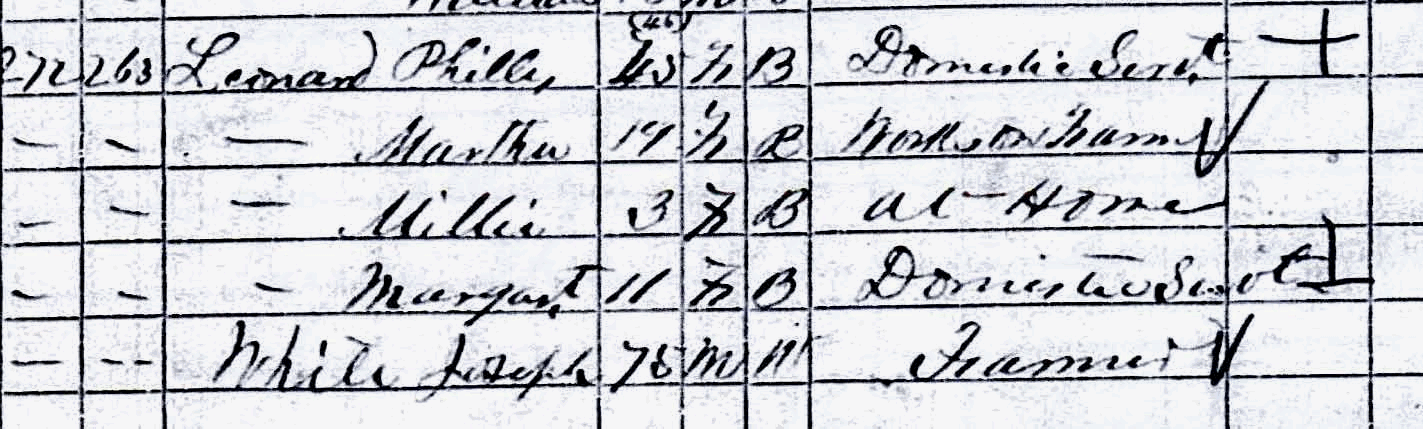 (46)
272 263 Leonard Philly 45 F B Domestic Servt
— — — Martha 19 F B Works on Farm
— — — Millie 3 F B At Home
— — — Margart 11 F B Domestic Servt
— -- White Joseph 75 M W Farmer